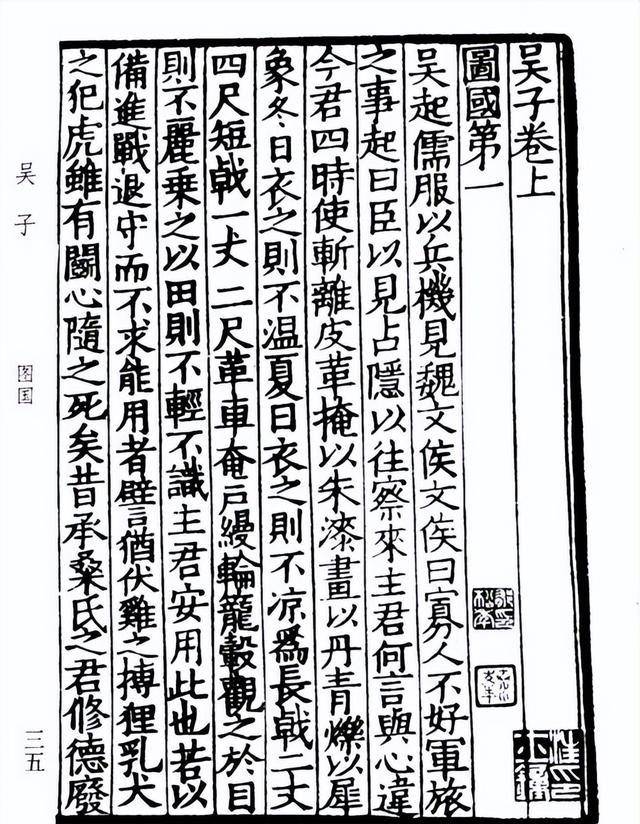 吴子卷上
圖國第一
吴起儒服以兵機見魏文侯文侯曰寡人不好軍旅
之事起曰臣以見占隱以往察來主君何言與心違
今君四時使斬離皮革掩以朱漆畫以丹青爍以犀
象冬日衣之則不温夏日衣之則不凉爲長戟二丈
四尺短戟一丈二尺革車奄戸縵輪籠轂觀之於目
則不麗乘之以田則不輕不識主君安用此也若以
備進戰退守而不求能用者譬猶伏雞之搏狸乳犬
之犯虎雖有鬭心隨之死矣昔承桑氏之君修德廢
吴子
图国
三五